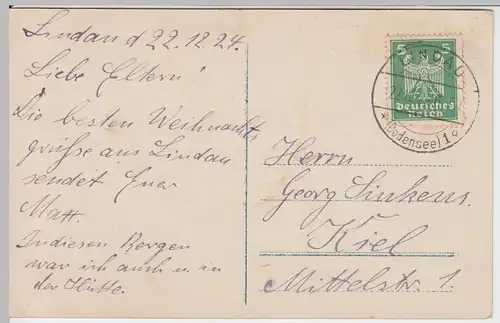 Lindau d 22.12.24.
Liebe Eltern!
Die besten Weihnachts
grüße aus Lindau
sendet Euer
Matt.
In diesen Bergen
war ich auch u. in
der Hütte.
5 5
Deutsches
Reich
LINDAU
(Bodensee) 1
Herrn
Georg Sinkens.
Kiel
Mittelstr. 1.